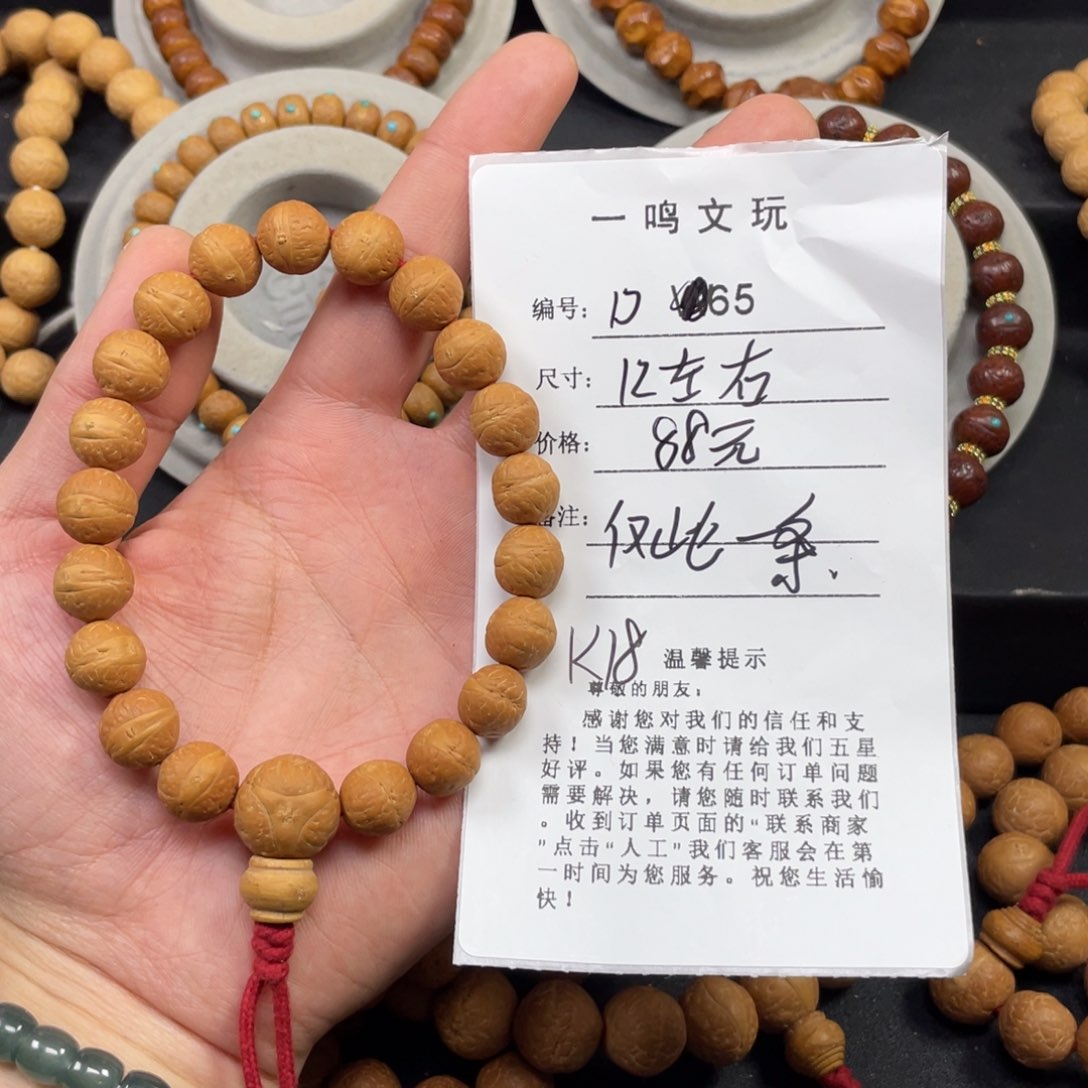 一鸣文玩
编号: D 65
尺寸: 12左右
价格: 88元
备注: 仅此一条.
K18
温馨提示
尊敬的朋友:
感谢您对我们的信任和支
持!当您满意时请给我们五星
好评。如果您有任何订单问题
需要解决,请您随时联系我们
。收到订单页面的“联系商家
”点击“人工”我们客服会在第
一时间为您服务。祝您生活愉
快!